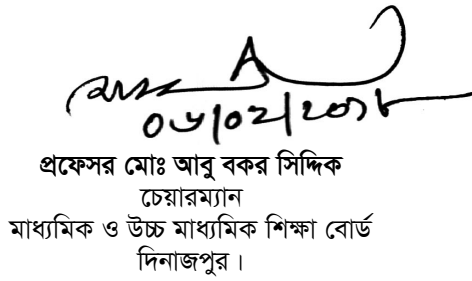 ০৬/০২/২০১৮
প্রফেসর মোঃ আবু বকর সিদ্দিক
চেয়ারম্যান
মাধ্যমিক ও উচ্চ মাধ্যমিক শিক্ষা বোর্ড
দিনাজপুর।